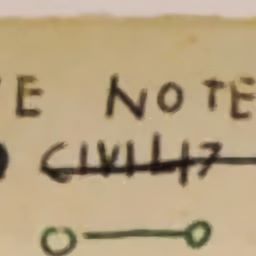 E NOTE
CIVIL